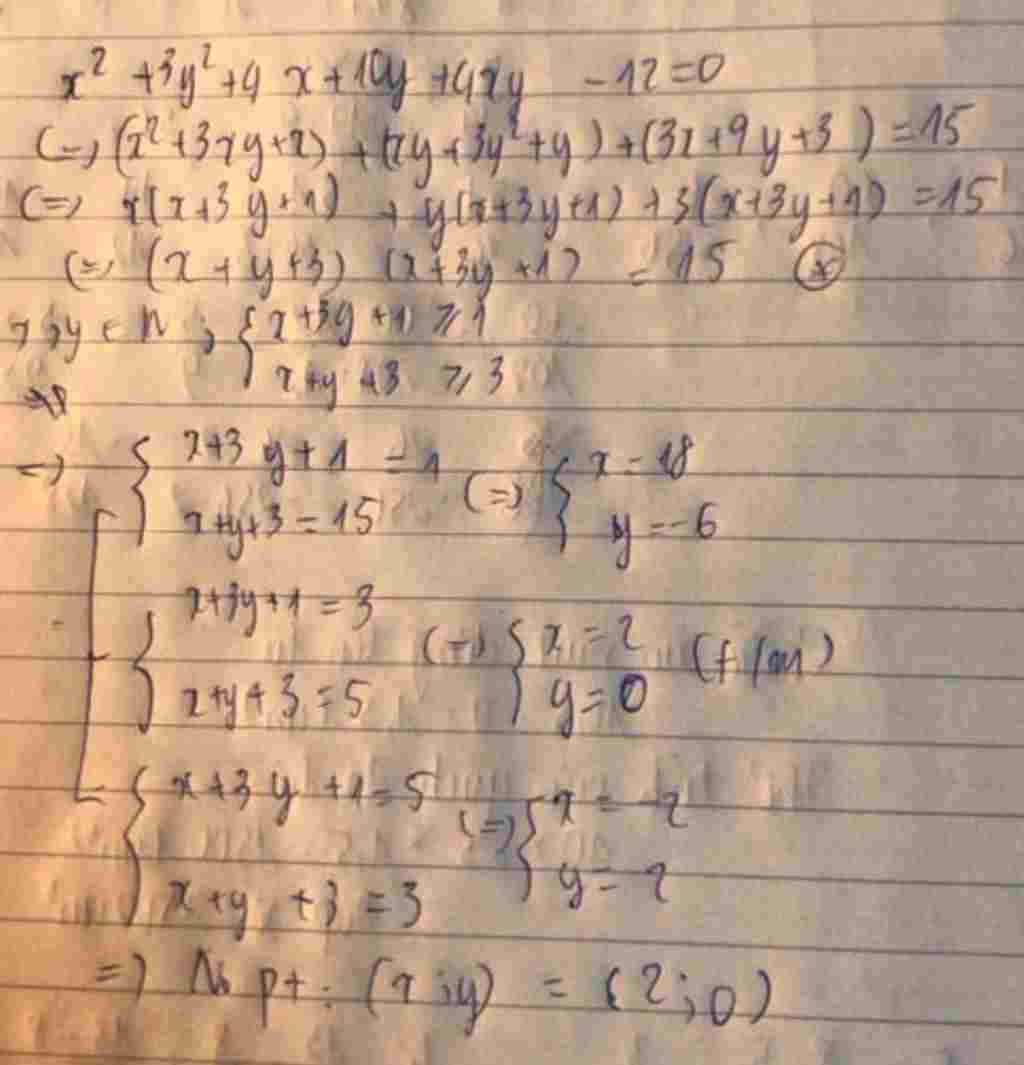 x² + 3y² + 4x + 10y + 4xy - 12 = 0
(=) (x² + 3xy + x) + (xy + 3y² + y) + (3x + 9y + 3) = 15
(=) x(x + 3y + 1) + y(x + 3y + 1) + 3(x + 3y + 1) = 15
(=) (x + y + 3) (x + 3y + 1) = 15 (*)
x, y ∈ N ; { x + 3y + 1 ⩾ 1
x + y + 3 ⩾ 3
=) { x + 3y + 1 = 1 (=) { x = 18
x + y + 3 = 15 y = -6
{ x + 3y + 1 = 3 (=) { x = 2 (t/m)
x + y + 3 = 5 y = 0
{ x + 3y + 1 = 5 (=) { x = -2
x + y + 3 = 3 y = 2
=) No pt : (x ; y) = (2 ; 0)